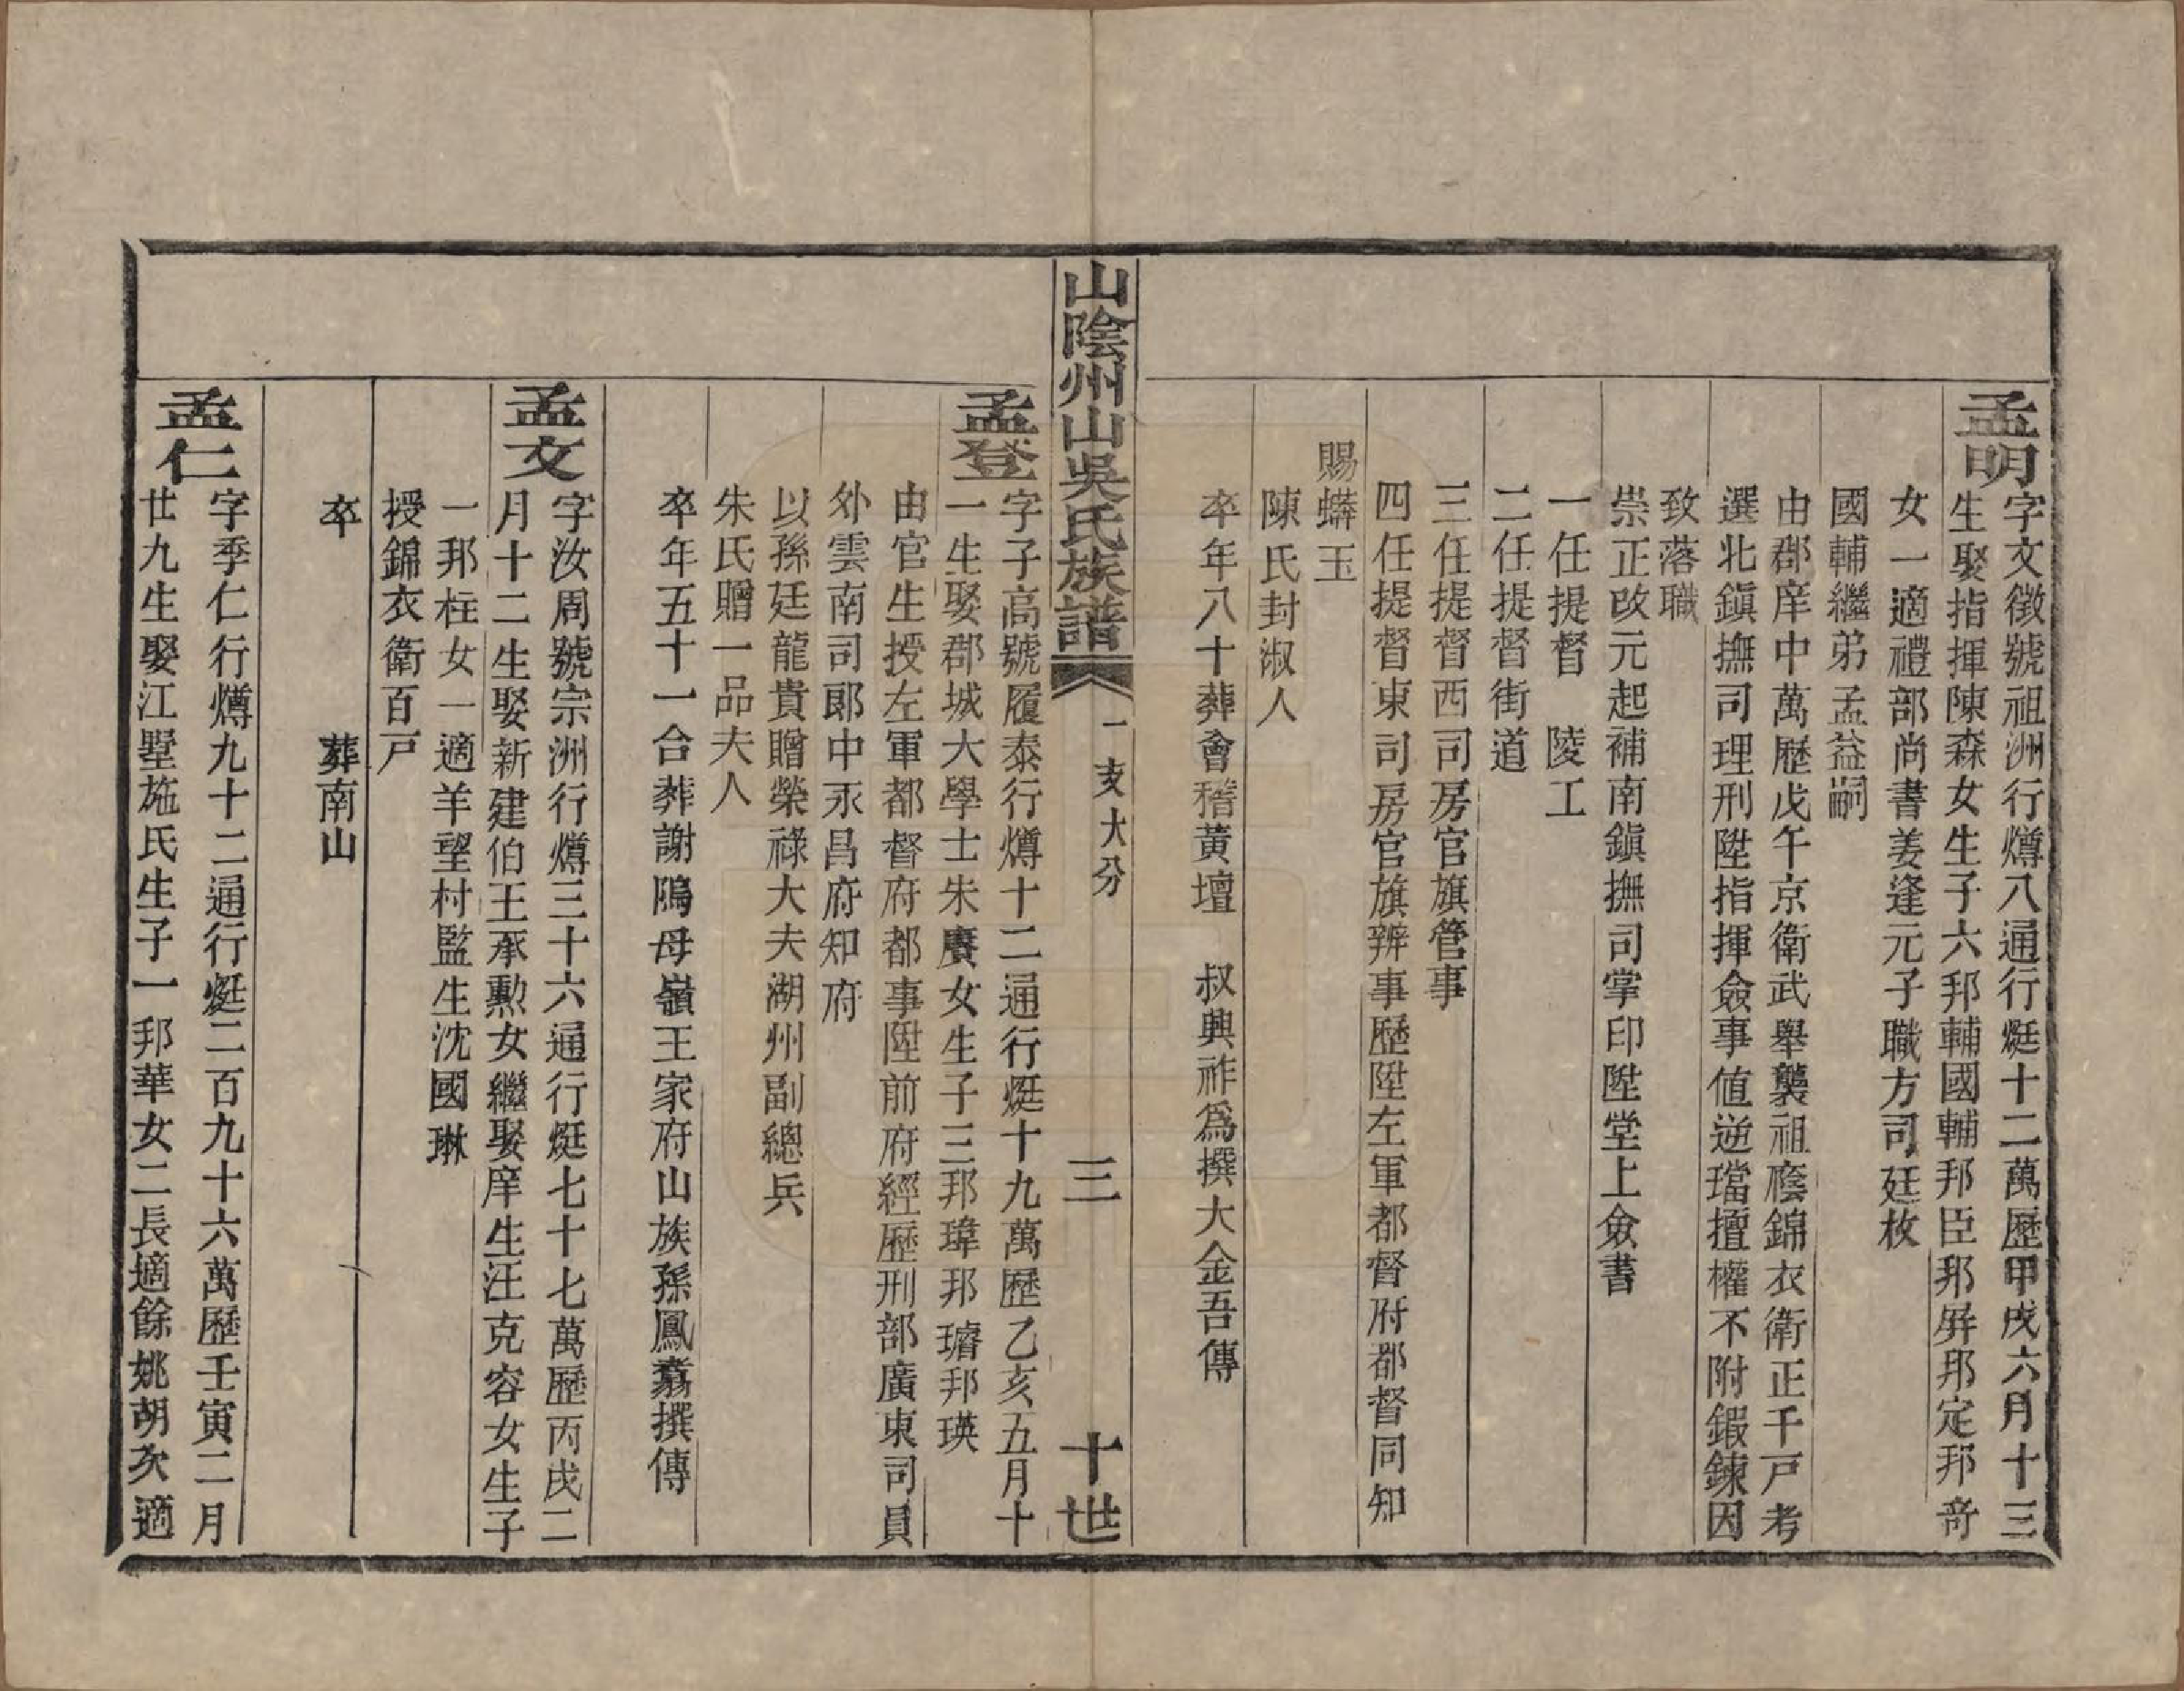 孟明
字文徵號祖洲行爝八通行烶十二萬歷甲戌六月十三
生娶指揮陳森女生子六邦輔國輔邦臣邦屏邦定邦奇
女一適禮部尚書姜逢元子職方司廷枚
國輔繼弟孟益嗣
由郡庠中萬歷戊午京衛武舉襲祖廕錦衣衛正千戸考
選北鎭撫司理刑陞指揮僉事值逆璫擅權不附鍜鍊因
致落職
崇正改元起補南鎭撫司掌印陞堂上僉書
一任提督　陵工
二任提督街道
三任提督西司房官旗管事
四任提督東司房官旗辦事歷陞左軍都督府都督同知
賜蟒玉
陳氏封淑人
卒年八十葬會稽黃壇　叔興祚爲撰大金吾傳
山陰州山吳氏族譜　一支大分　三　十世
孟登
字子高號履泰行爝十二通行烶十九萬歷乙亥五月十
一生娶郡城大學士朱賡女生子三邦瑋邦璿邦瑛
由官生授左軍都督府都事陞前府經歷刑部廣東司員
外雲南司郎中永昌府知府
以孫廷龍貴贈榮祿大夫湖州副總兵
朱氏贈一品夫人
卒年五十一合葬謝塢母嶺王家府山族孫鳳翥撰傳
孟文
字汝周號宗洲行爝三十六通行烶七十七萬歷丙戌二
月十二生娶新建伯王承勲女繼娶庠生汪克容女生子
一邦柱女一適羊望村監生沈國琳
授錦衣衛百戸
卒　　　　葬南山
孟仁
字季仁行爝九十二通行烶二百九十六萬歷壬寅二月
廿九生娶江墅施氏生子一邦華女二長適餘姚胡次適